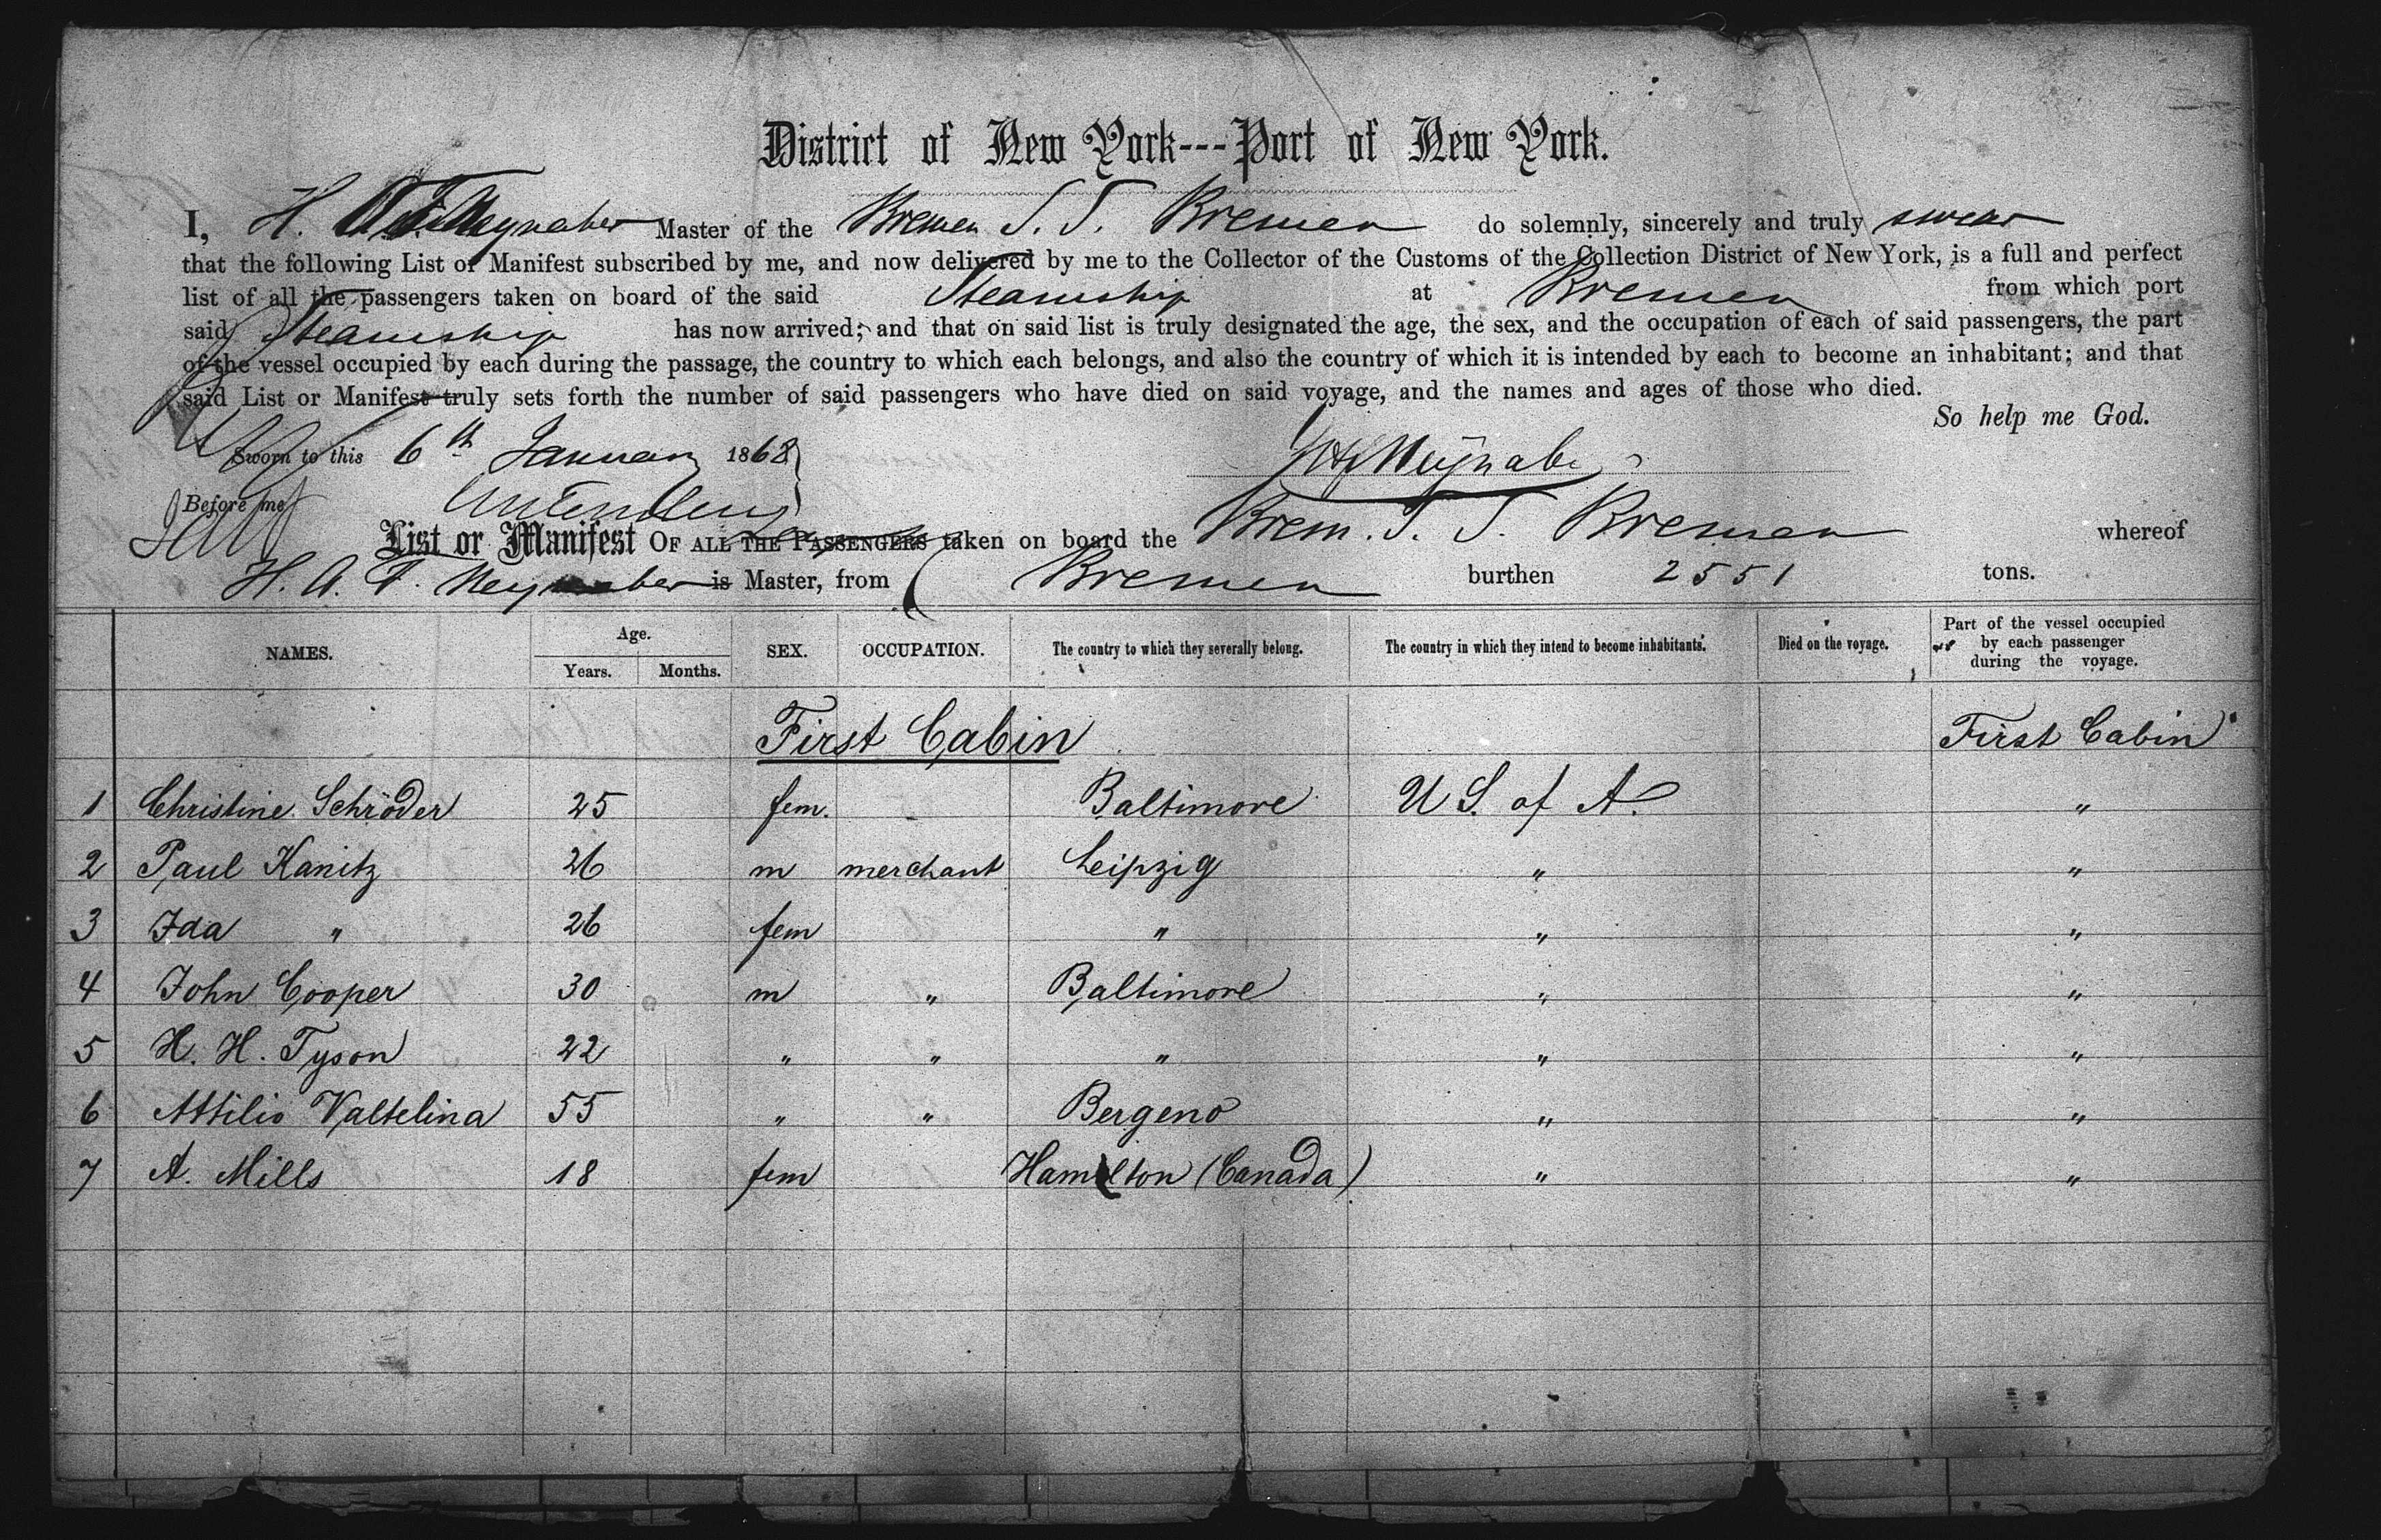 District of New York---Port of New York.
I, H. A. F. Neynaber Master of the Bremen S. S. Bremen do solemnly, sincerely and truly swear
that the following List or Manifest subscribed by me, and now delivered by me to the Collector of the Customs of the Collection District of New York, is a full and perfect
list of all the passengers taken on board of the said Steamship at Bremen from which port
said Steamship has now arrived; and that on said list is truly designated the age, the sex, and the occupation of each of said passengers, the part
of the vessel occupied by each during the passage, the country to which each belongs, and also the country of which it is intended by each to become an inhabitant; and that
said List or Manifest truly sets forth the number of said passengers who have died on said voyage, and the names and ages of those who died.
So help me God.
Sworn to this 6th January 1868
Before me
List or Manifest OF ALL THE PASSENGERS taken on board the Brem. S. S. Bremen whereof
H. A. F. Neynaber is Master, from Bremen burthen 2551 tons.
NAMES. Age. Years. Months. SEX. OCCUPATION. The country to which they severally belong. The country in which they intend to become inhabitants. Died on the voyage. Part of the vessel occupied by each passenger during the voyage.
First Cabin First Cabin
1 Christine Schröder 25 fem. Baltimore U S. of A. "
2 Paul Kanitz 26 m merchant Leipzig " "
3 Ida " 26 fem " " "
4 John Cooper 30 m " Baltimore " "
5 H. H. Tyson 22 " " " " "
6 Attilio Valtelina 55 " " Bergeno " "
7 A. Mills 18 fem Hamilton (Canada) " "